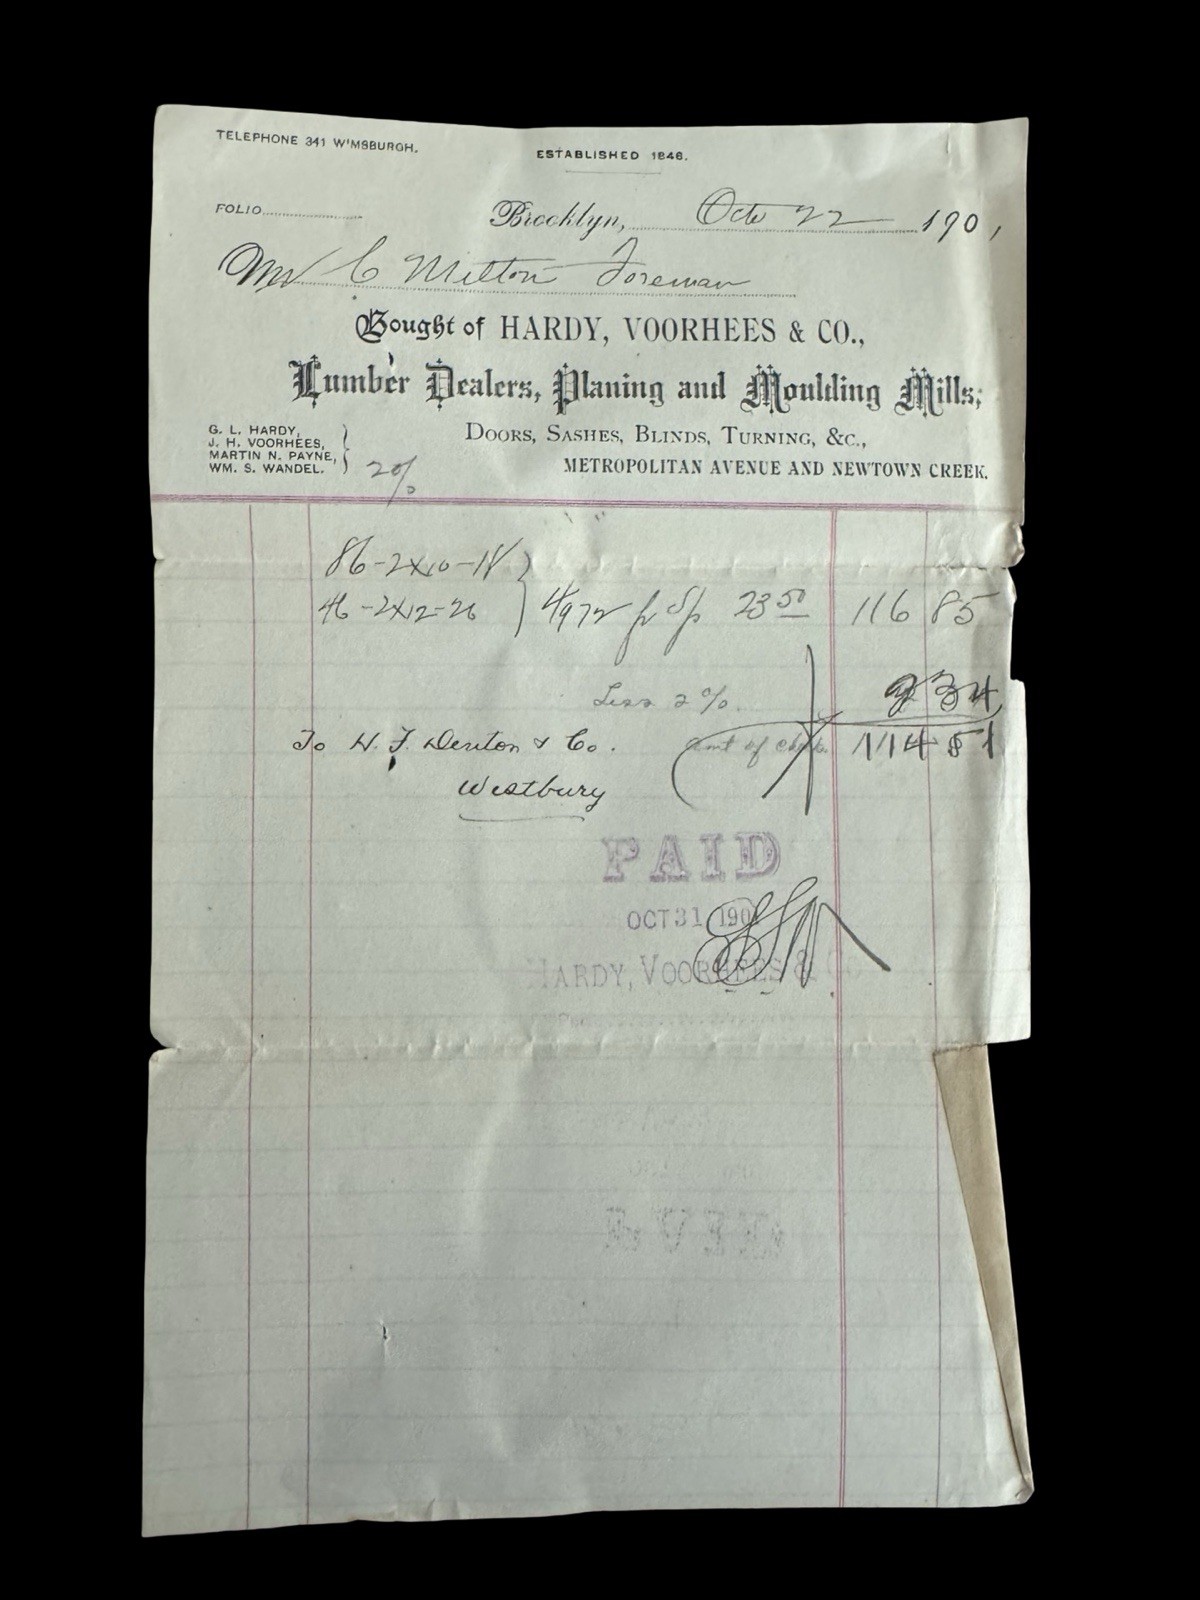 TELEPHONE 341 W'MSBURGH.
ESTABLISHED 1846.
FOLIO
Brooklyn, Oct 22 1901
Mr C Milton Foreman
Bought of HARDY, VOORHEES & CO.,
Lumber Dealers, Planing and Moulding Mills,
G. L. HARDY,
J. H. VOORHEES,
MARTIN N. PAYNE,
WM. S. WANDEL.
DOORS, SASHES, BLINDS, TURNING, &C.,
METROPOLITAN AVENUE AND NEWTOWN CREEK.
2%
86-2x10-18
46-2x12-26
4972 23 50 116 85
Less 2% 2 34
To H. F. Denton & Co. amt of check 114 51
Westbury
PAID
OCT 31 1901
HARDY, VOORHEES & CO